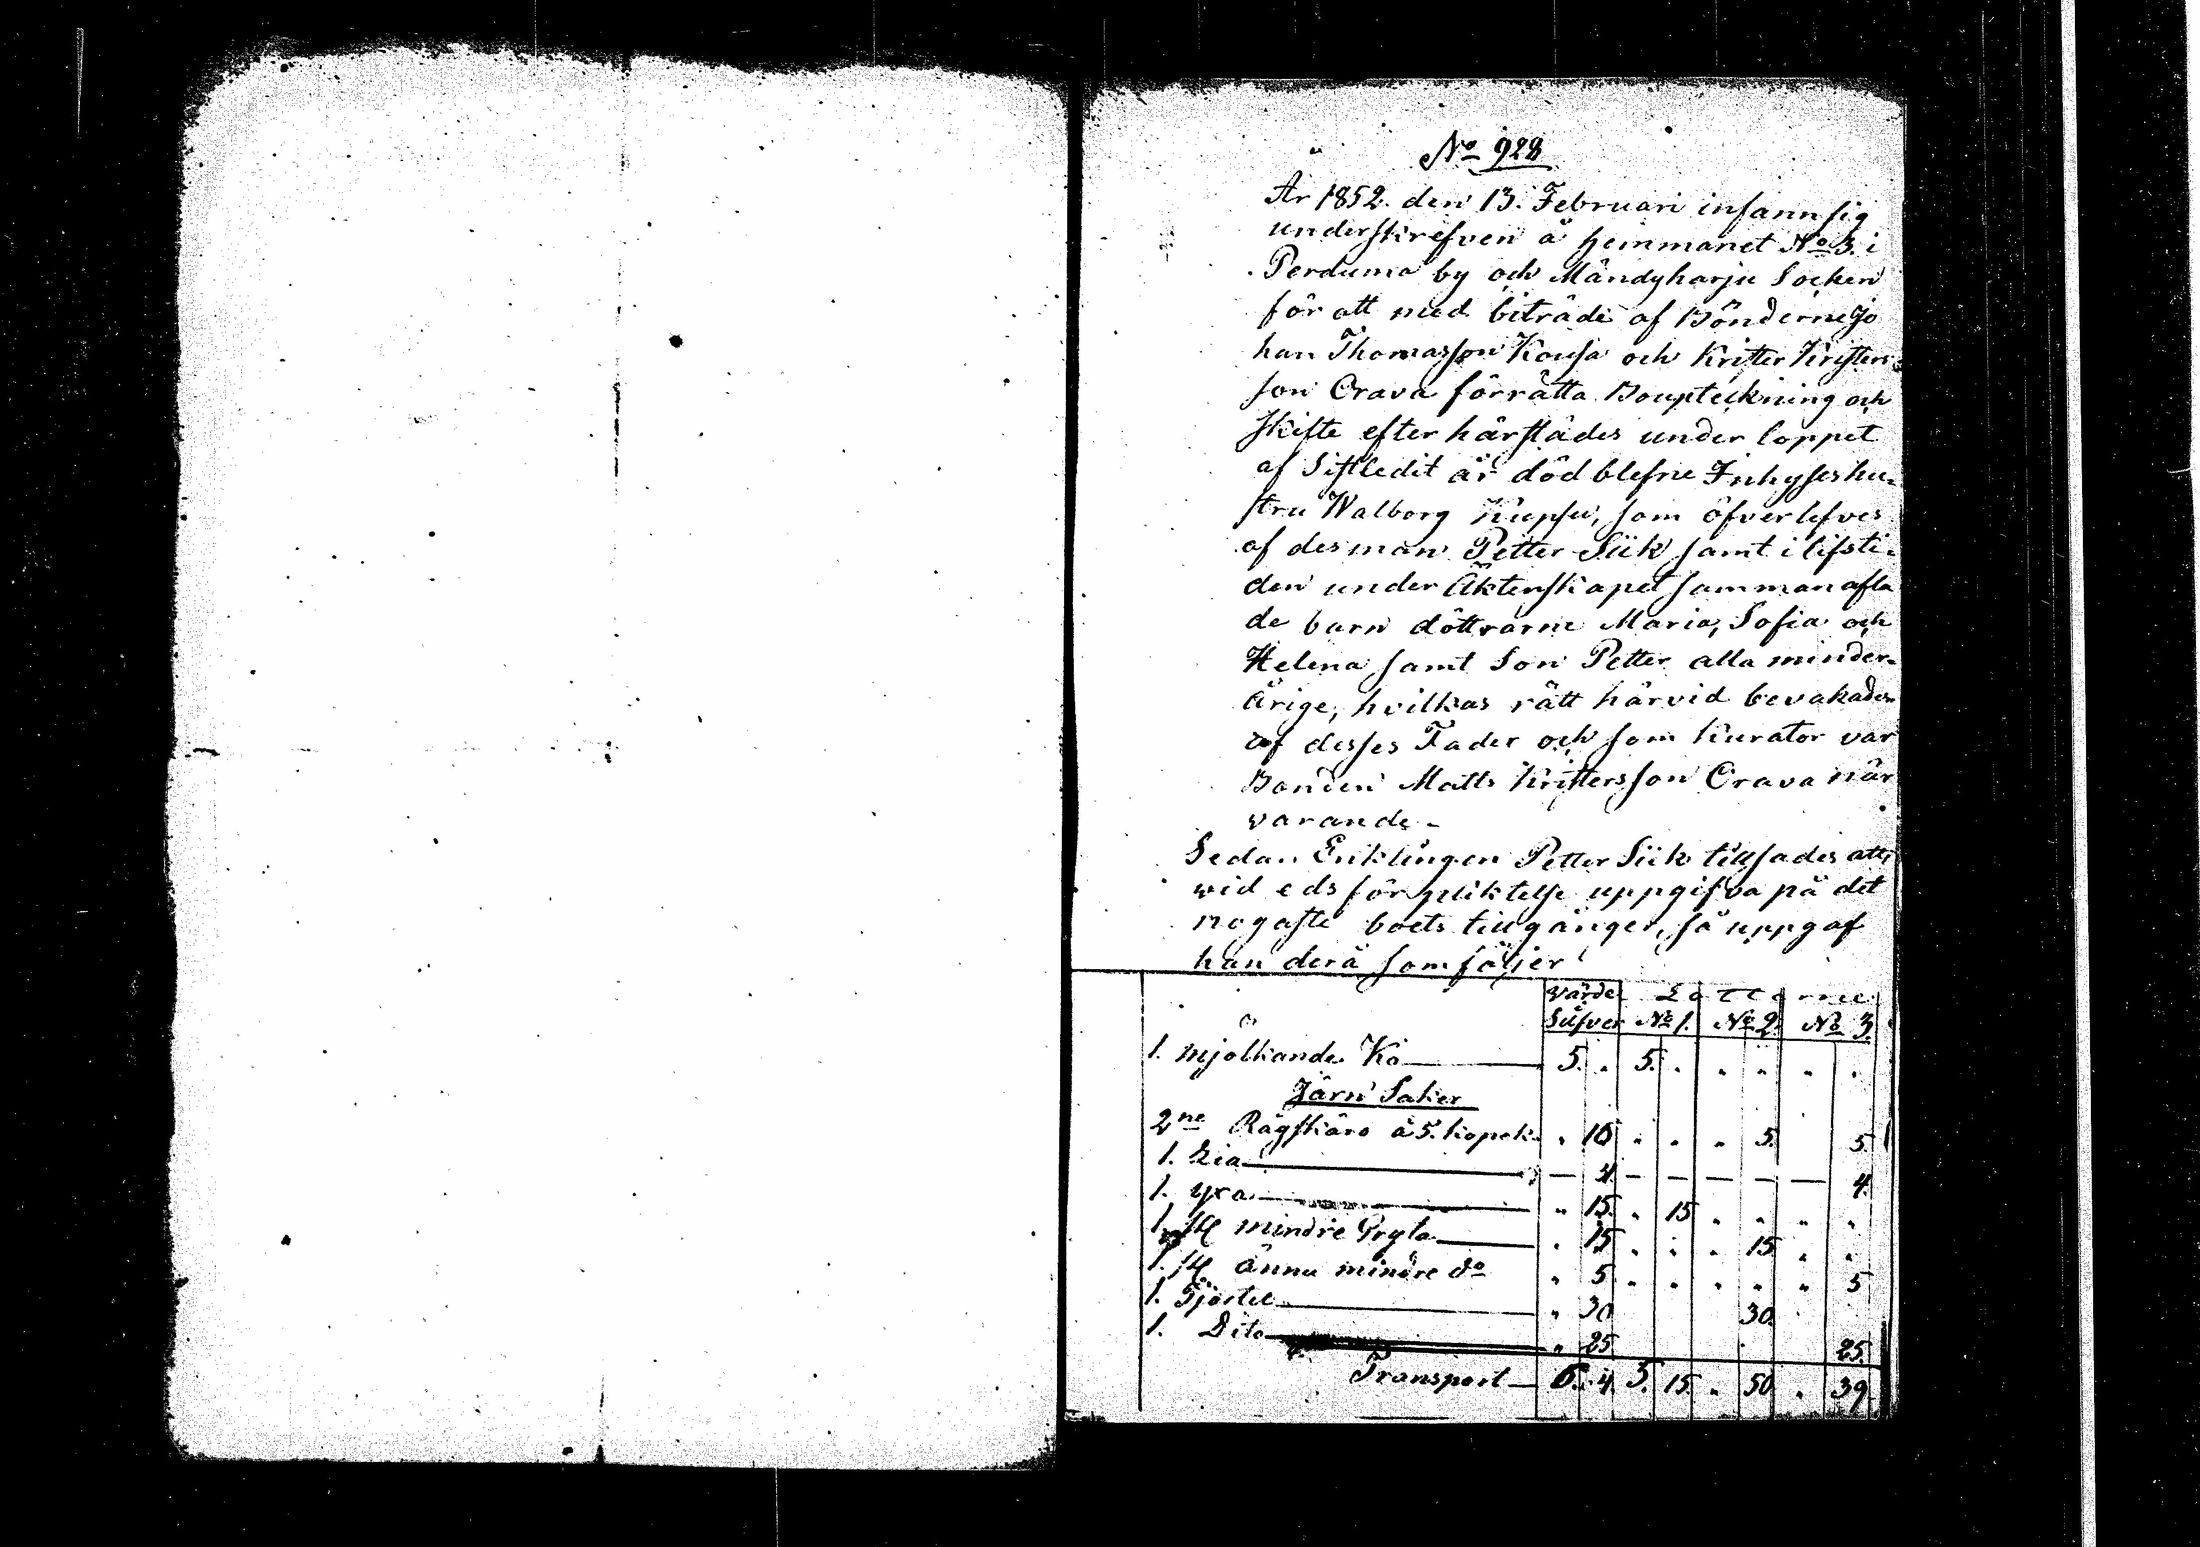 No 928
År 1852. den 13. Februari infann sig
underskrefven å hemmanet No 3. i
Perduma by och Mändyharju Socken
för att med biträde af Bönderne Jo
han Thomasson Kousa och Krister Kristers-
son Orava förrätta Bouptekning och
skifte efter härstädes under loppet
af Sistledit år död blefne Inhyseshu-
stru Walborg Kupsu, som öfverlefves
af des man Petter Siik samt i lifsti-
den under Äktenskapet sammanafla
de barn döttrarne Maria, Sofia och
Helena samt Son Petter alla minder-
årige, hvilkas rätt härvid bevakades
af desses Fader och som Kurator var
Bonden Matts Kristersson Orava när
varande.-
Sedan Enklingen Petter Siik tillsades att
wid edsförpliktelse uppgifva på det
nogaste boets tillgånger, så uppgaf
han derå som följer
värde Lotterne
Silfver No 1. No 2. No 3.
1. mjölkande Ko 5. " 5. " " " " "
Järn Saker
2ne Rågskära à 5. kopek. " 10 " " " 5. 5
1. Lia — 4 — — — — — 4.
1. yxa " 15. " 15 " " " "
1. st mindre Gryta " 15 " " " 15 " "
1. st ännu mindre do " 5 " " " " " 5
1. Tjäril " 30 30
1. Dito " 25 25.
Transport 6. 4. 5. 15. " 50 " 39.